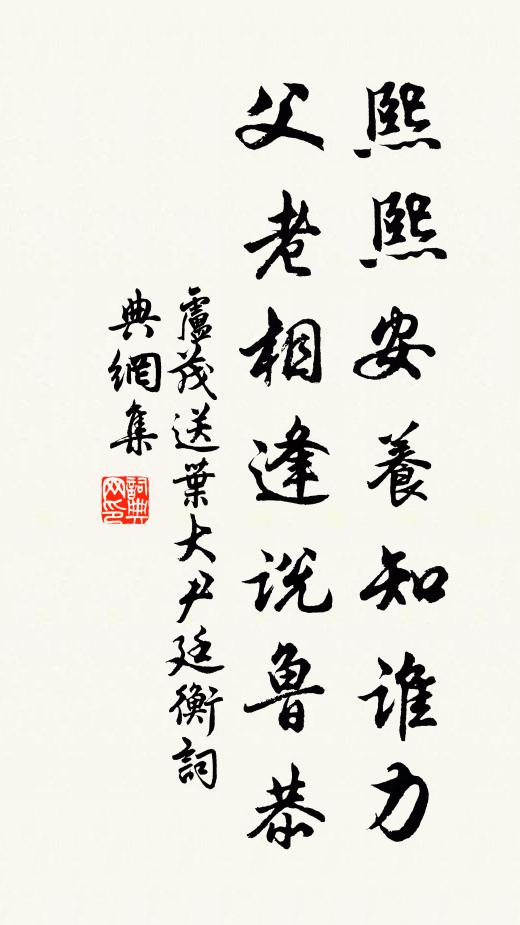 熙熙安養知誰力
父老相逢説魯恭
盧茂送葉大尹廷衡詞
典網集
詞典
网印